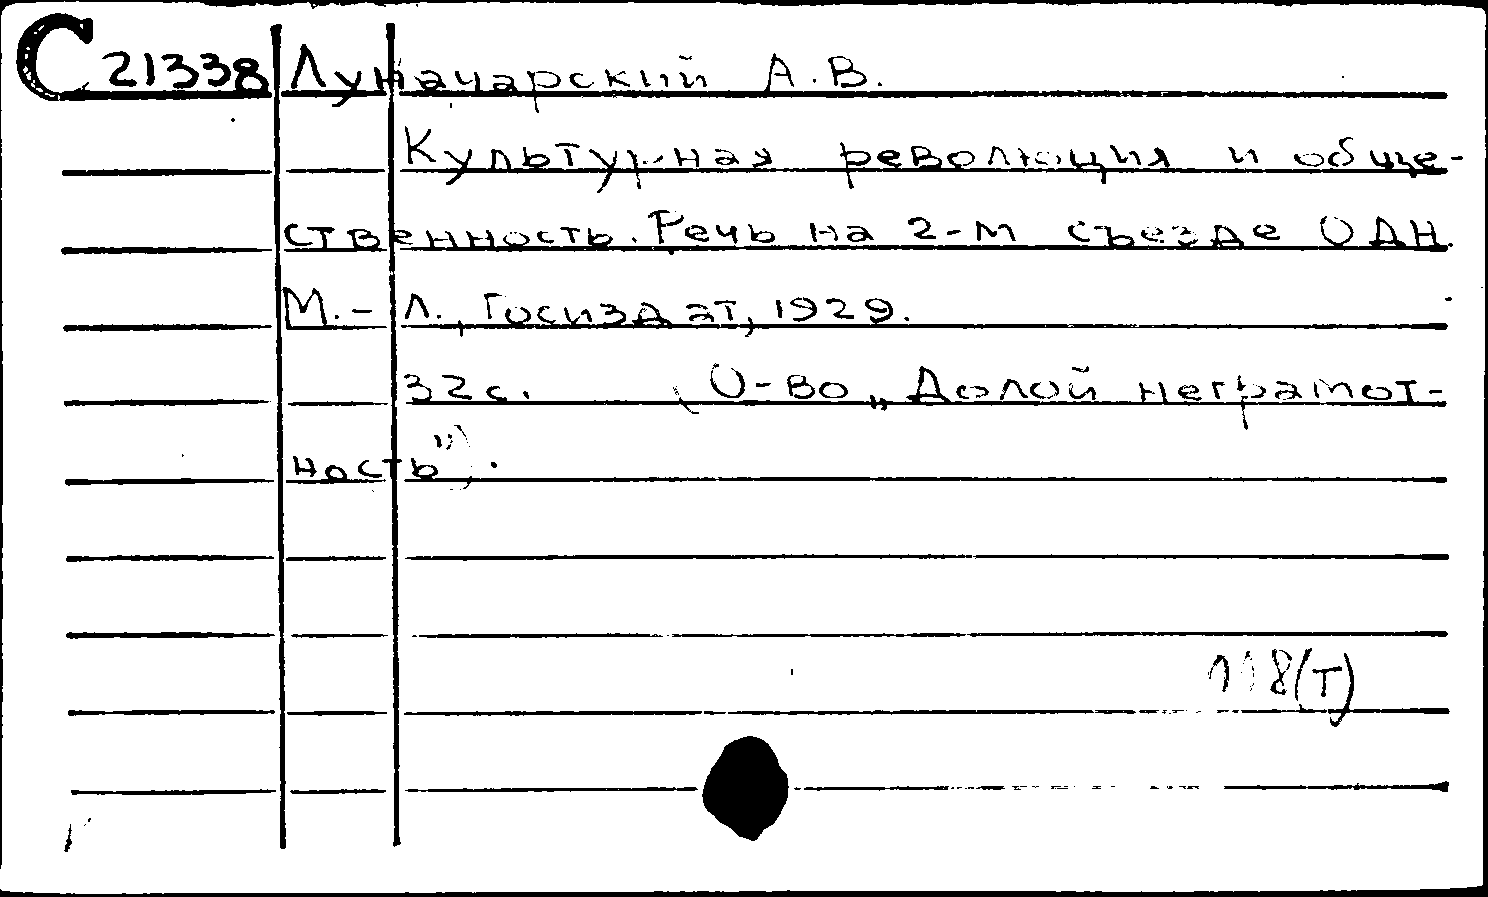 С 21338 Луначарский А.В.
Культурная революция и обще-
ственность. Речь на 2-м съезде ОДН.
М.-Л., Госиздат, 1929.
32 с. (О-во „Долой неграмот-
ность").
118(т)